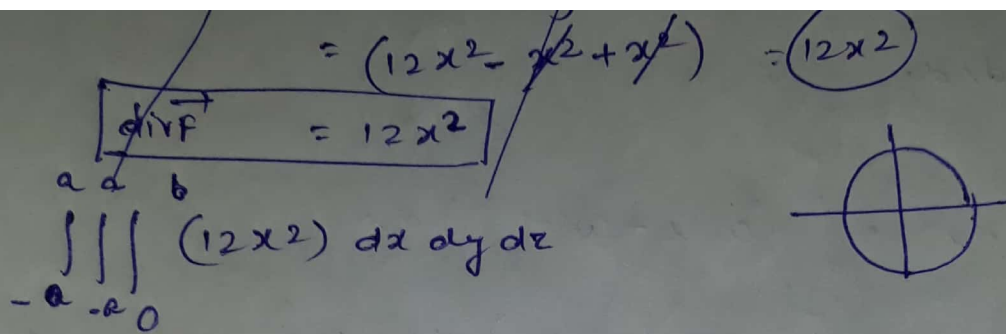 = (12x² - x² + x²) = 12x²
div F⃗ = 12x²
a a b
∫∫∫ (12x²) dx dy dz
-a -a 0